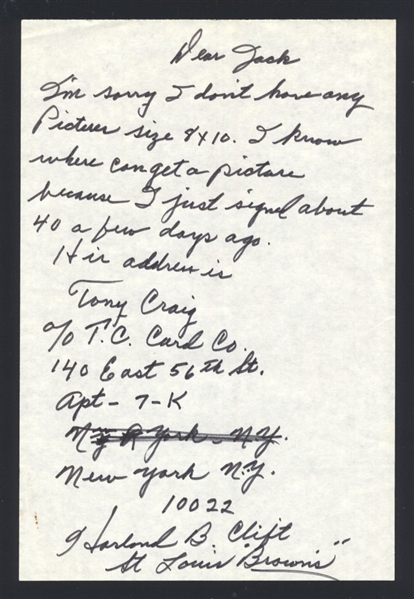 Dear Jack
I'm sorry I don't have any
Pictures size 8x10. I know
where can get a picture
because I just signed about
40 a few days ago.
His address is
Tony Craig
c/o T.C. Card Co.
140 East 56th St.
Apt- 7-K
New York N.Y.
10022
Harlond B. Clift
St Louis "Browns"